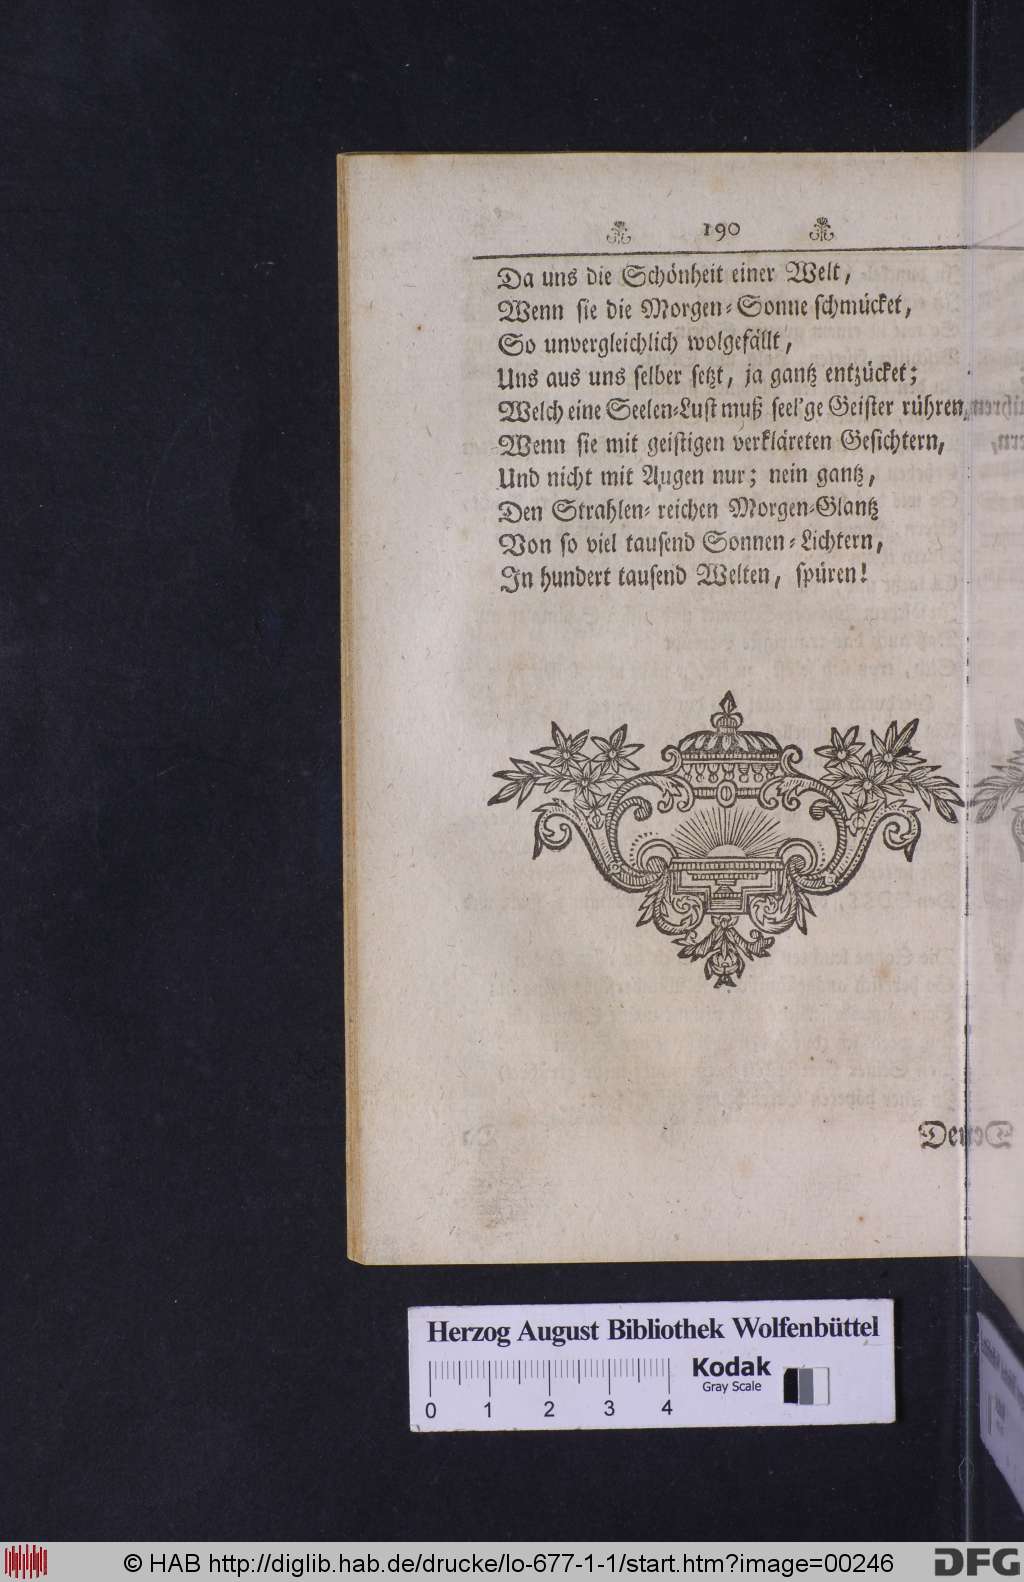 190
Da uns die Schönheit einer Welt,
Wenn sie die Morgen-Sonne schmücket,
So unvergleichlich wolgefällt,
Uns aus uns selber setzt, ja gantz entzücket;
Welch eine Seelen-Lust muß seel'ge Geister rühren,
Wenn sie mit geistigen verkläreten Gesichtern,
Und nicht mit Augen nur; nein gantz,
Den Strahlen-reichen Morgen-Glantz
Von so viel tausend Sonnen-Lichtern,
In hundert tausend Welten, spüren!
Herzog August Bibliothek Wolfenbüttel
Kodak
Gray Scale
0 1 2 3 4
© HAB http://diglib.hab.de/drucke/lo-677-1-1/start.htm?image=00246
DFG